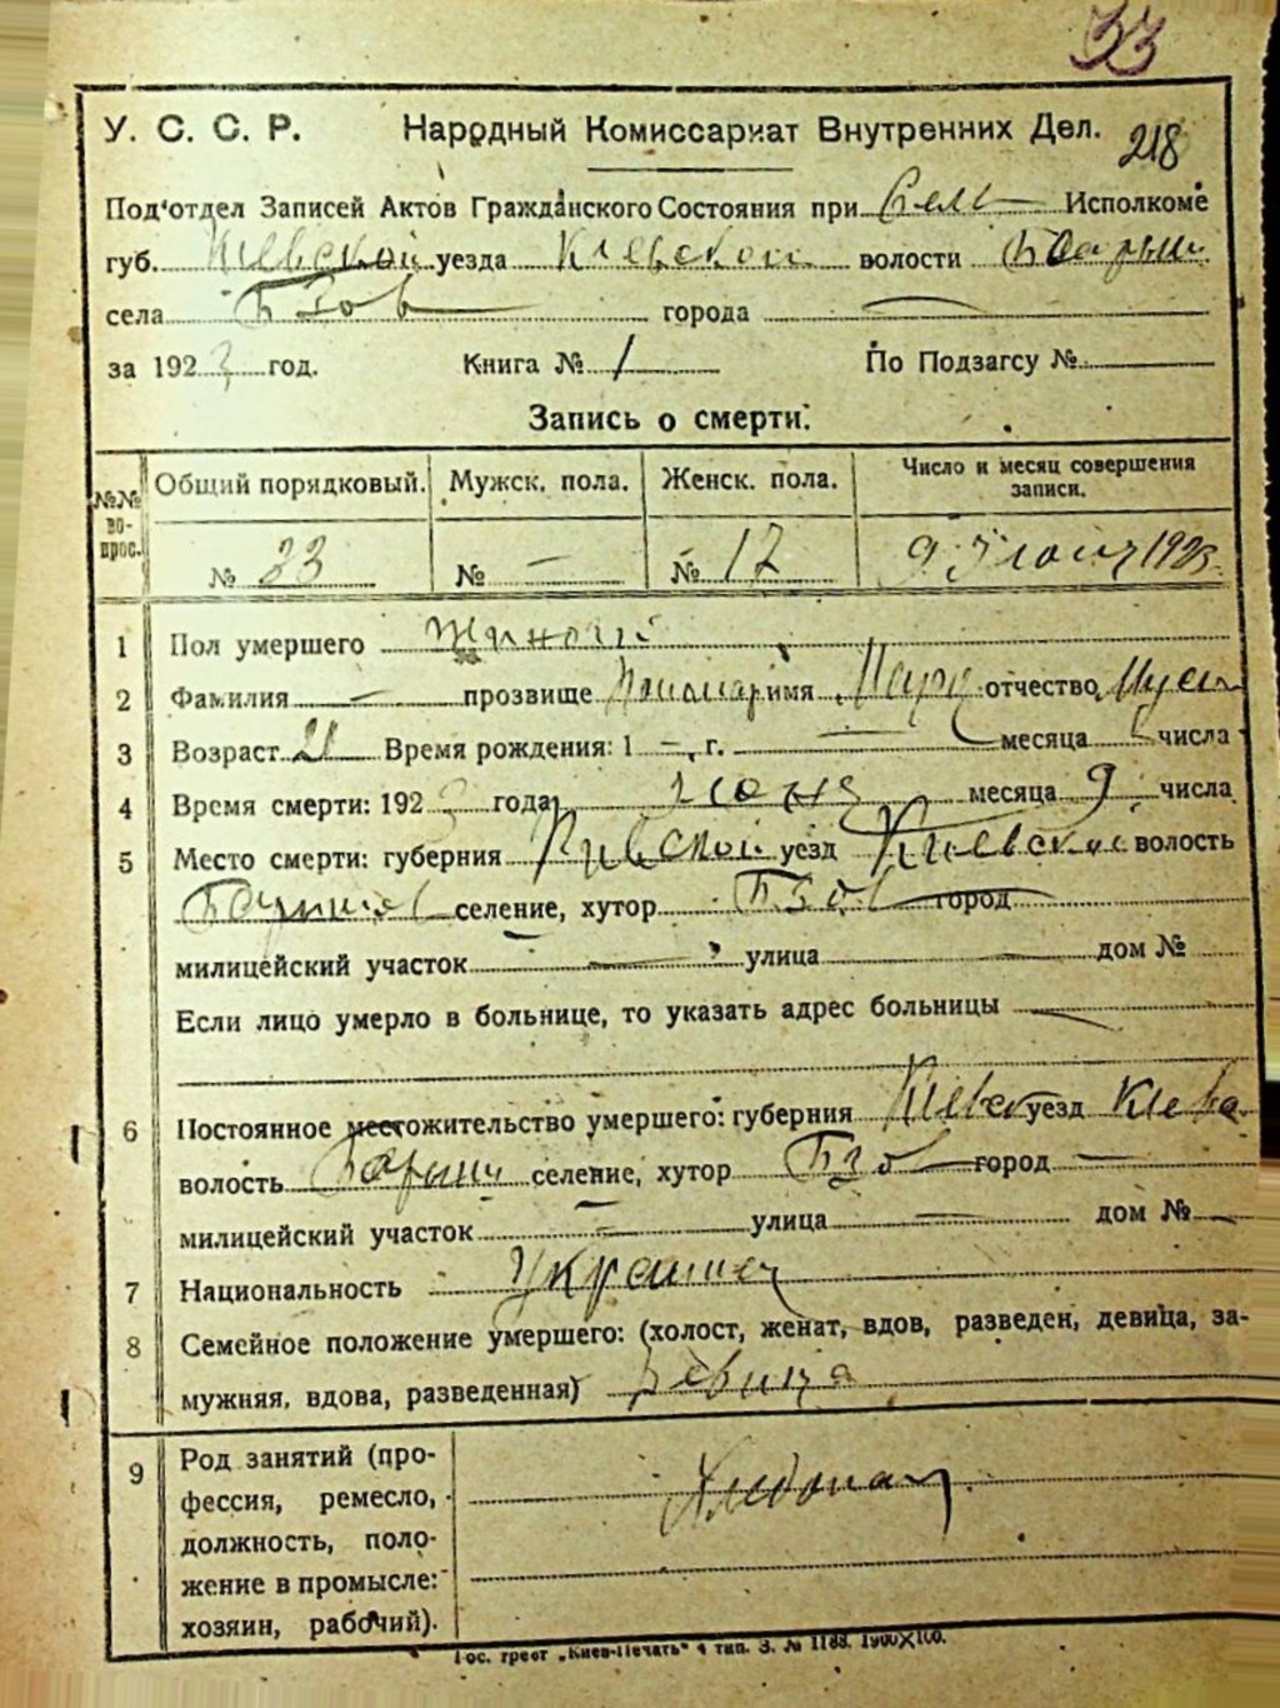 33
У. С. С. Р. Народный Комиссариат Внутренних Дел. 218
Под'отдел Записей Актов Гражданского Состояния при Сель Исполкоме
губ. Киевской уезда Киевской волости
села Бзов города —
за 1923 год. Книга № 1 По Подзагсу №
Запись о смерти.
№№ вопрос. Общий порядковый. Мужск. пола. Женск. пола. Число и месяц совершения записи.
№ 23 № — № 17 9 1923
1 Пол умершего
2 Фамилия — прозвище имя отчество
3 Возраст 21 Время рождения: 1 — г. — месяца числа
4 Время смерти: 1923 года июня месяца 9 числа
5 Место смерти: губерния Киевской уезд Киевской волость
селение, хутор Бзов город
милицейский участок — улица — дом №
Если лицо умерло в больнице, то указать адрес больницы —
6 Постоянное местожительство умершего: губерния Киевск уезд Киева
волость Барыш селение, хутор Бзов город —
милицейский участок — улица — дом № —
7 Национальность
8 Семейное положение умершего: (холост, женат, вдов, разведен, девица, за-
мужняя, вдова, разведенная) Девица
9 Род занятий (про-
фессия, ремесло,
должность, поло-
жение в промысле:
хозяин, рабочий).
Гос. трест „Киев-Печать" 4 тип. З. № 1188. 1900Х100.